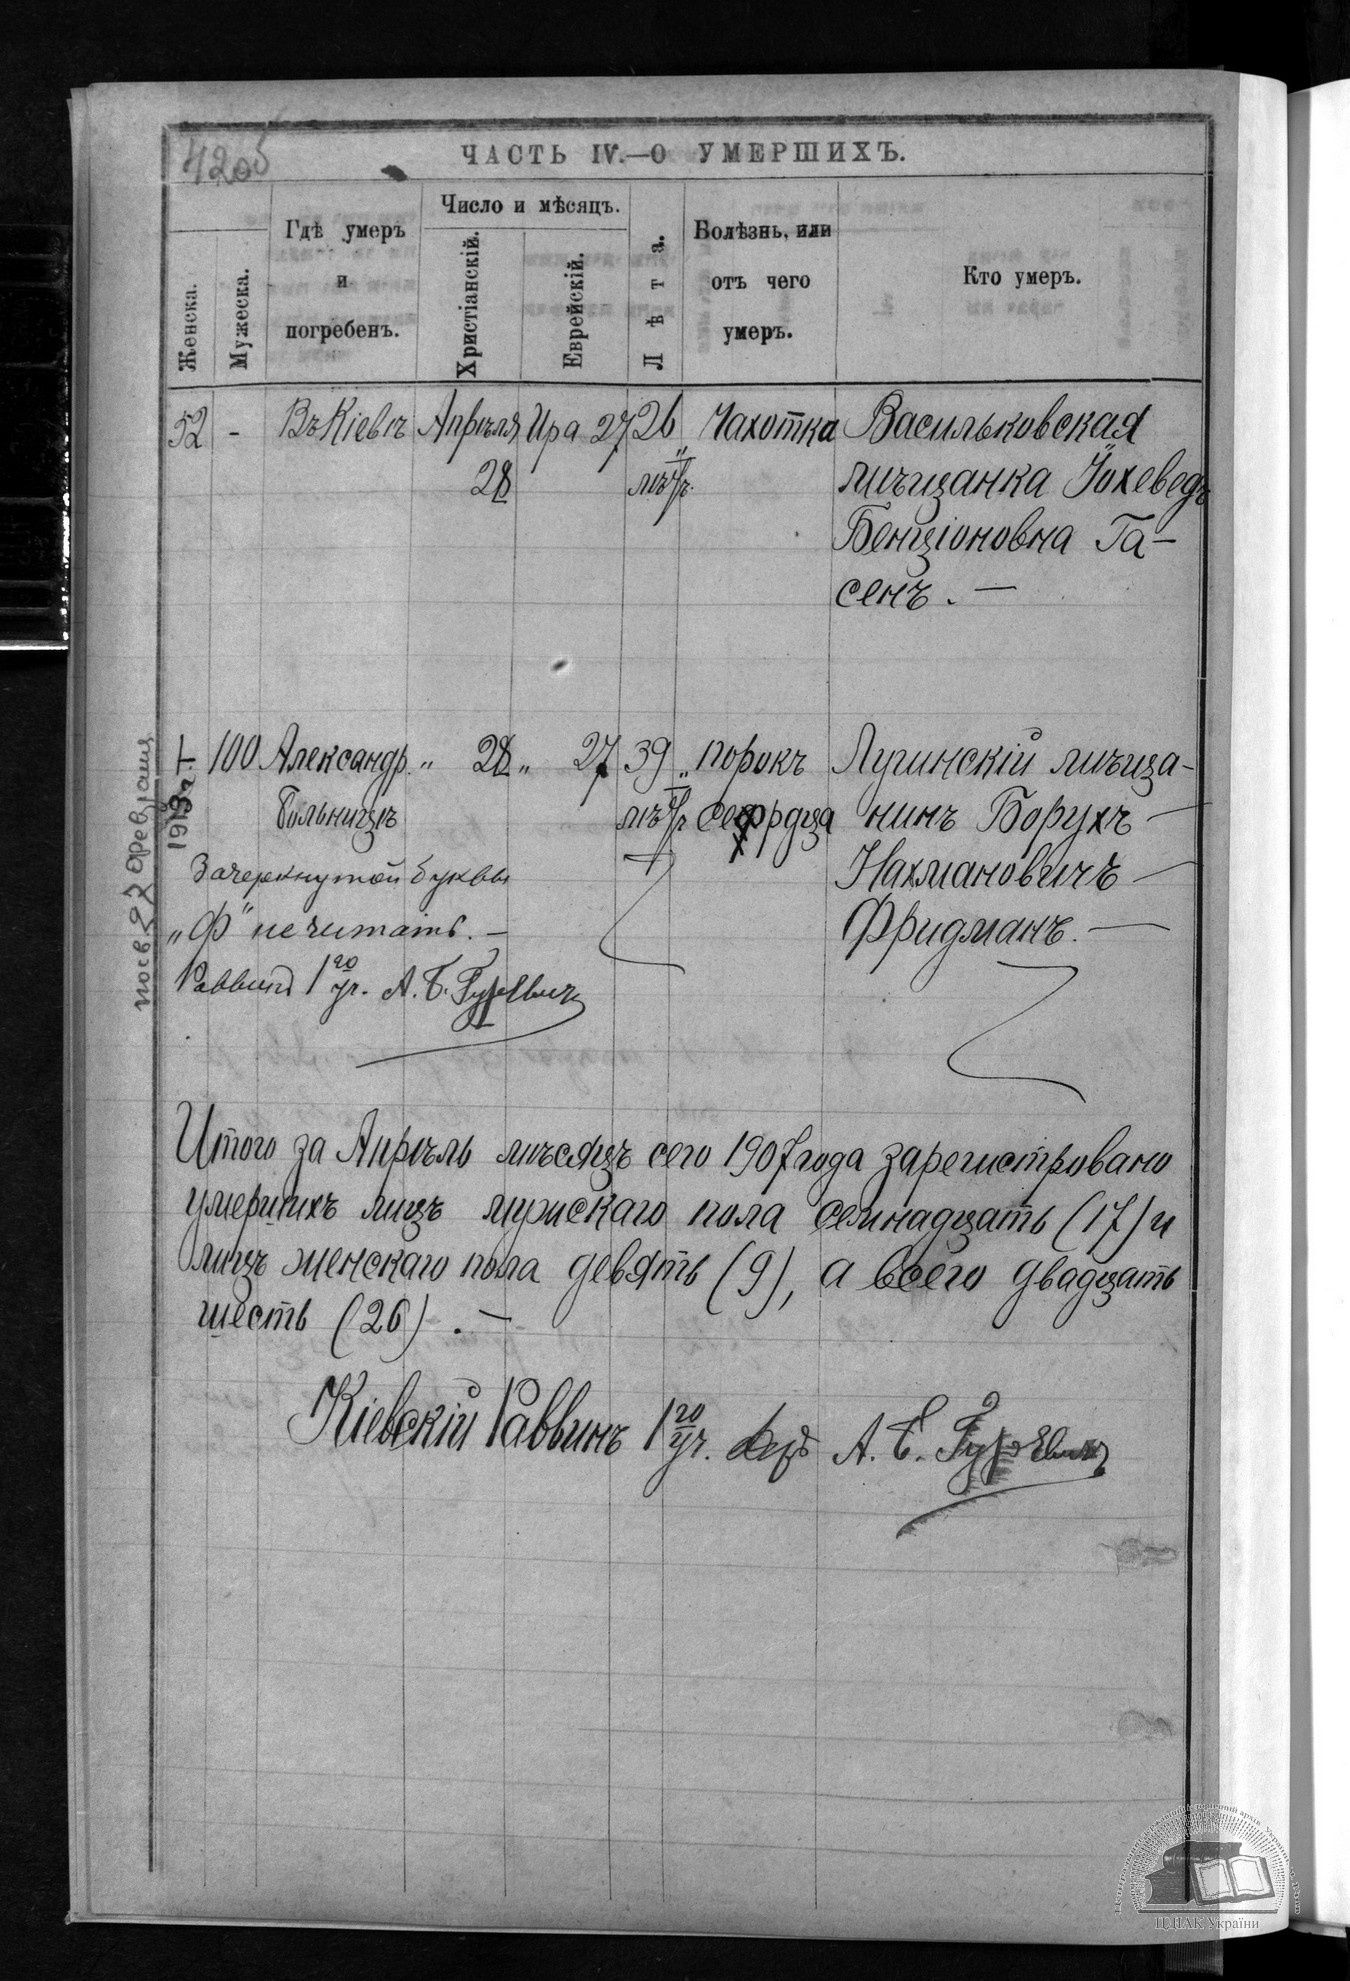 420об
ЧАСТЬ IV.—О УМЕРШИХЪ.
Женска.
Мужеска.
Гдѣ умеръ
и
погребенъ.
Число и мѣсяцъ.
Христіанскій.
Еврейскій.
Лѣта.
Болѣзнь, или
отъ чего
умеръ.
Кто умеръ.
52 - Въ Кіевѣ Апрѣля Ира 27 26 Чахотка Васильковская
28 лѣтъ. мѣщанка Йохеведъ
Бенціоновна Га-
сенъ. —
100 Александр. „ 28 „ 27 39 „ порокъ Лугинскій мѣща-
Больницѣ лѣтъ сефрдца нинъ Борухъ —
Зачеркнутой буквы Нахмановичъ —
„Ф" не читать. — Фридманъ. —
Раввинъ 1го уч. А. Б. Гуревичъ
1913 г. I
27 февраля
Итого за Апрѣль мѣсяцъ сего 1907 года зарегистровано
умершихъ лицъ мужскаго пола семнадцать (17) и
лицъ женскаго пола девять (9), а всего двадцать
шесть (26). —
Кіевскій Раввинъ 1го уч. А. Б. Гуревичъ
ЦДІАК України